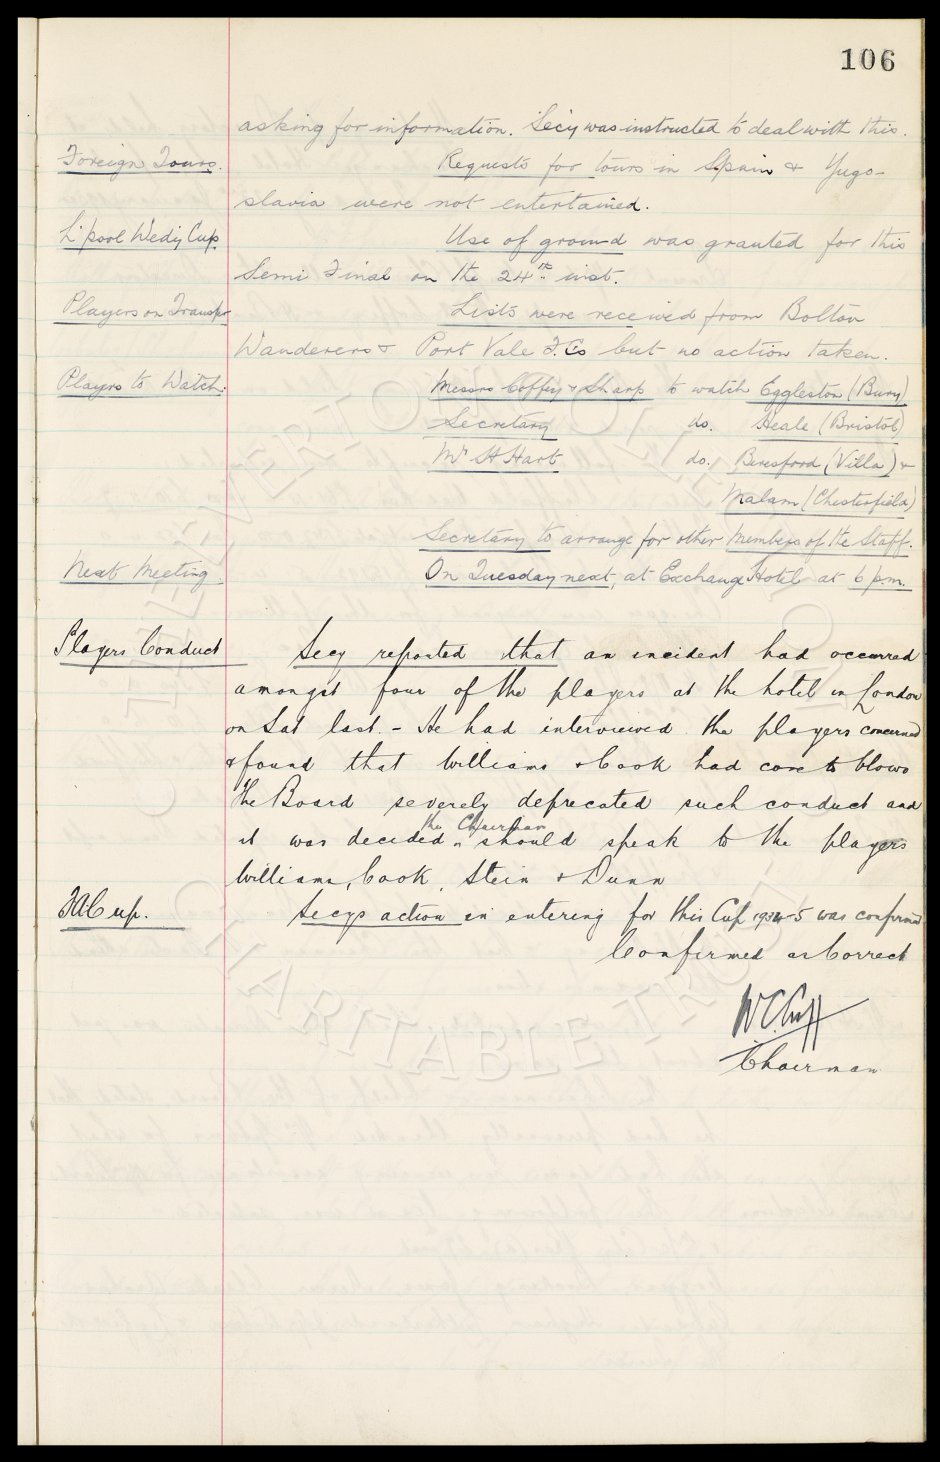 106
asking for information. Secy was instructed to deal with this.
Foreign Tours. Requests for tours in Spain & Yugo-
slavia were not entertained.
L'pool Wedy Cup. Use of ground was granted for this
Semi Final on the 24th inst.
Players on Transfer Lists were received from Bolton
Wanderers & Port Vale F.Cs but no action taken.
Players to Watch. Messrs Coffey & Sharp to watch Eggleston (Bury)
Secretary do. Heale (Bristol)
Mr H Hart do. Beresford (Villa) &
Malam (Chesterfield)
Secretary to arrange for other Members of the Staff.
Next Meeting. On Tuesday next, at Exchange Hotel at 6 p.m.
Players Conduct Secy reported that an incident had occurred
amongst four of the players at the hotel in London
on Sat last. - He had interviewed the players concerned
& found that Williams & Cook had come to blows
the Board severely deprecated such conduct and
the Chairman
it was decided should speak to the players
Williams, Cook, Stein & Dunn
FA Cup. Secys action in entering for this Cup 1934-5 was confirmed
Confirmed as Correct
W.C. Cuff
Chairman
EVERTON COLLECTION
CHARITABLE TRUST